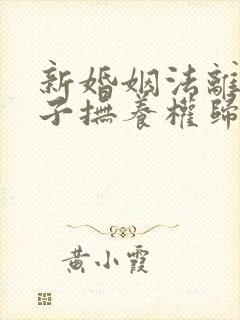 新婚姻法離
子撫養權歸
黃小霞